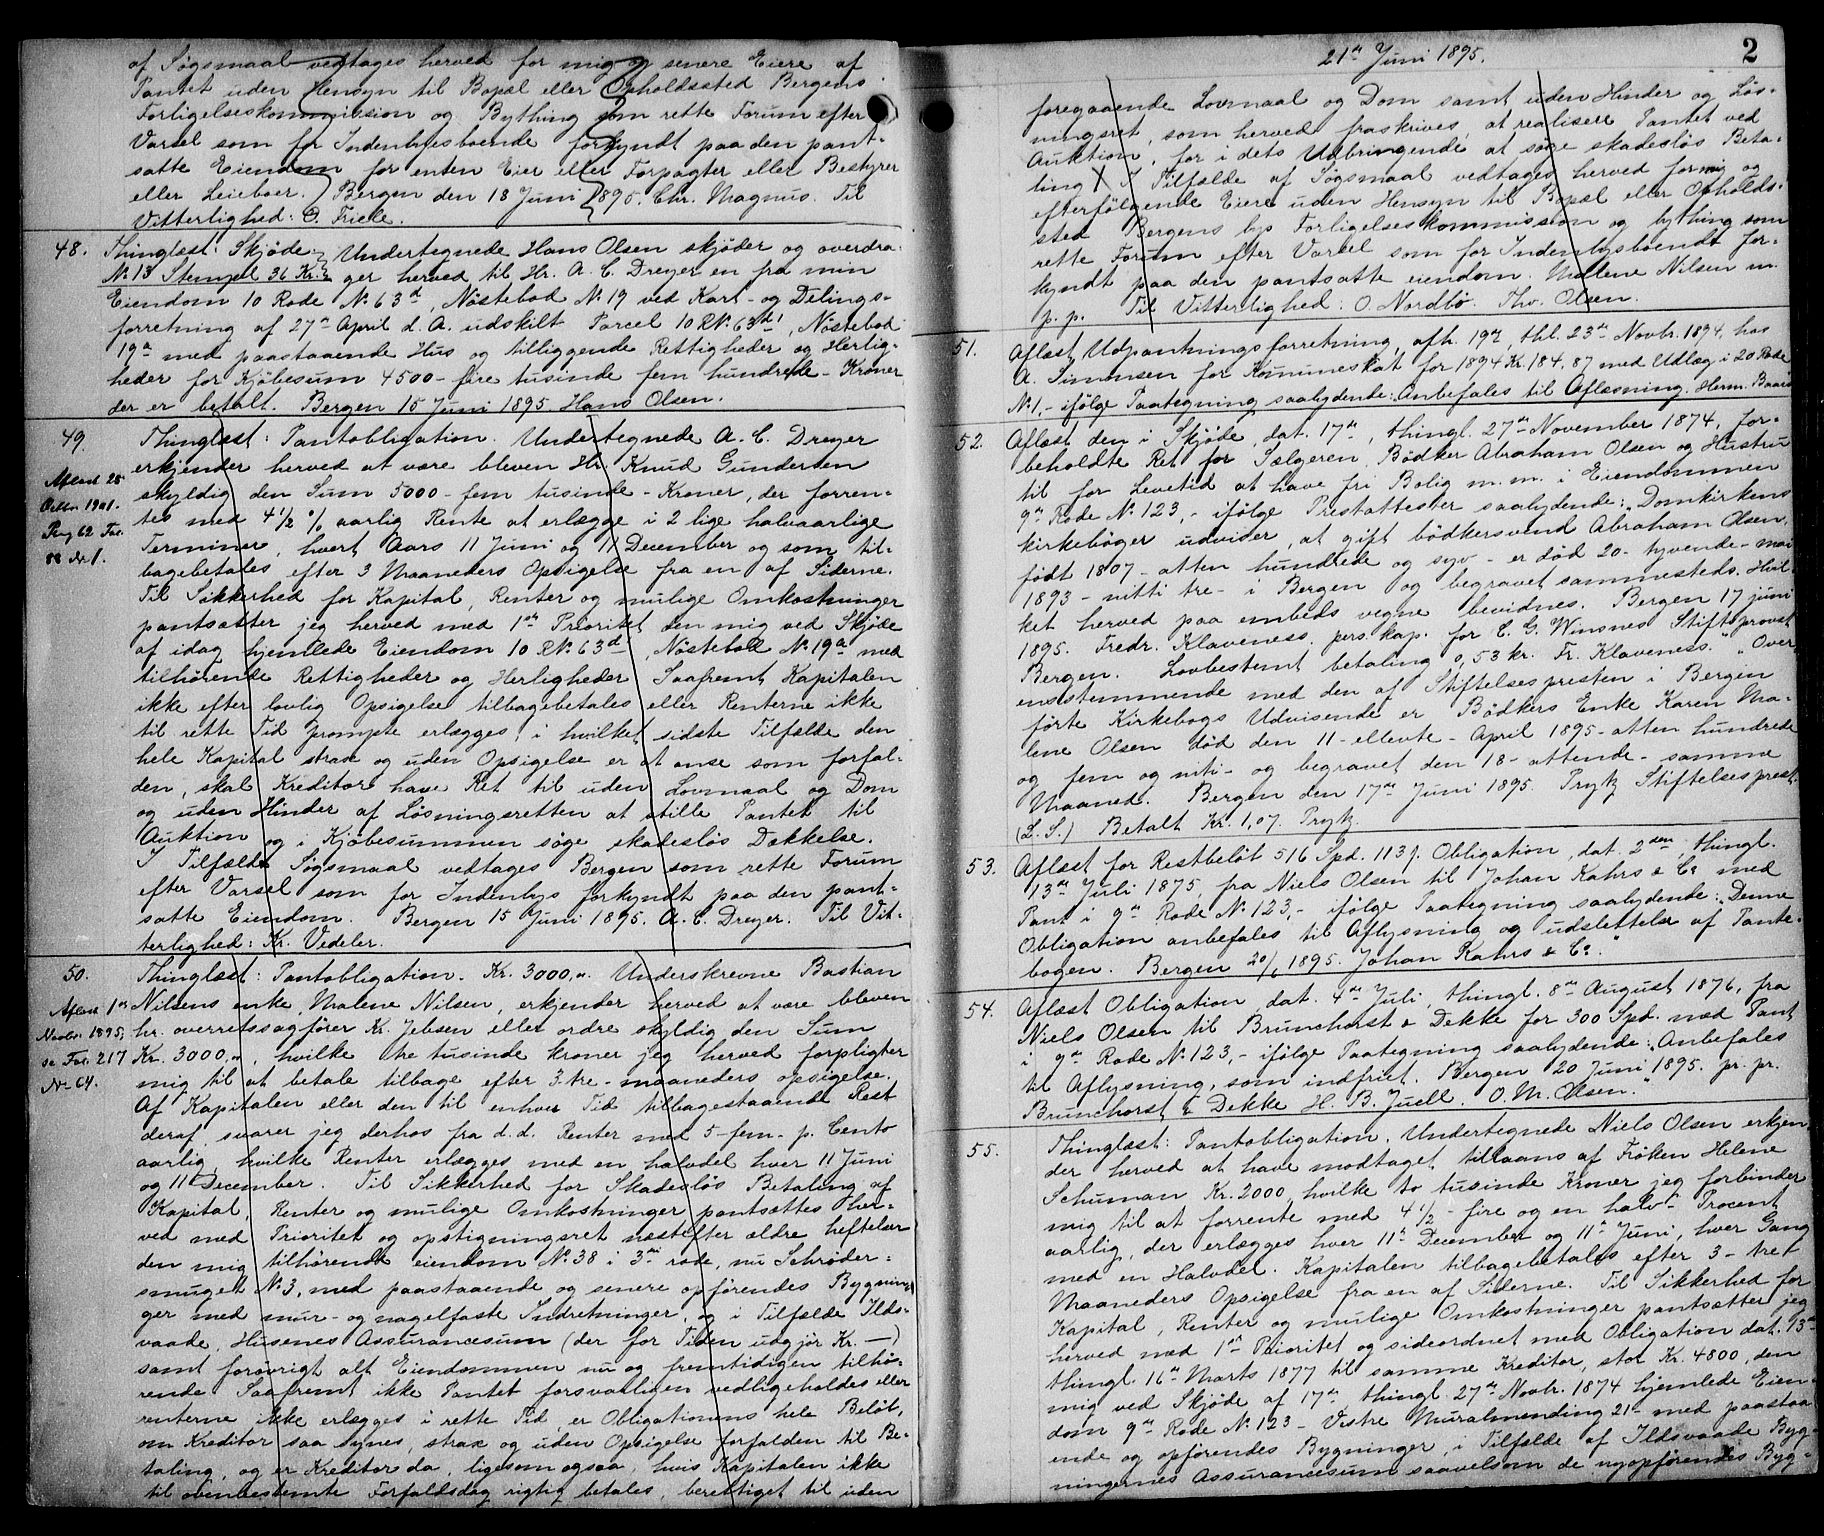 af Søgsmaal vedtages herved for mig og senere Eiere af
Pantet uden Hensyn til Bopæl eller Opholdssted Bergens
Forligelseskommission og Bything som rette Forum efter
Varsel som for Indenbysboende forkyndt paa den pant-
satte Eiendom for enten Eier eller Forpagter eller Bestyrer
eller Leieboer. Bergen den 18 Juni 1895. Chr. Magnus. Til
Vitterlighed: C. Fricke.
48. Thinglæst: Skjøde. Undertegnede Hans Olsen skjøder og overdra-
No 13 Stempel 36 Kr. ger herved til Hr. A. C. Dreyer en fra min
Eiendom 10 Rode No. 63d, Nøstebod No. 19 ved Kart- og Delings-
forretning af 27de April d. A. udskilt Parcel 10 R No. 63d1, Nøstebod
19a med paastaaende Hus og tilliggende Rettigheder og Herlig-
heder for Kjøbesum 4500 - fire tusinde fem hundrede - Kroner
der er betalt. Bergen 15 Juni 1895. Hans Olsen.
49. Thinglæst: Pantobligation. Undertegnede A. C. Dreyer
erkjender herved at være bleven Hr. Knud Gundersen
Aflæst 25 skyldig den Sum 5000 - fem tusinde - Kroner, der forren-
Octbr. 1901. tes med 4 1/2 % aarlig Rente at erlægge i 2 lige halvaarlige
Prg 62 Fol. Terminer, hvert Aars 11 Juni og 11 December og som til-
88 No 1. bagebetales efter 3 Maaneders Opsigelse fra en af Siderne.
Til Sikkerhed for Kapital, Renter og mulige Omkostninger
pantsætter jeg herved med 1ste Prioritet den mig ved Skjøde
af idag hjemlede Eiendom 10 R No. 63d, Nøstebod No. 19a med
tilhørende Rettigheder og Herligheder Saafremt Kapitalen
ikke efter lovlig Opsigelse tilbagebetales eller Renterne ikke
til rette Tid prompte erlægges, i hvilket sidste Tilfælde den
hele Kapital strax og uden Opsigelse er at anse som forfal-
den, skal Kreditor have Ret til uden Lovmaal og Dom
og uden Hinder af Løsningsretten at stille Pantet til
Auktion og i Kjøbesummen søge skadesløs Dækkelse.
I Tilfælde Søgsmaal vedtages Bergen som rette Forum
efter Varsel som for Indenbys forkyndt paa den pant-
satte Eiendom. Bergen 15 Juni 1895. A. C. Dreyer. Til Vit-
terlighed: Kr. Vedeler.
50. Thinglæst: Pantobligation. Kr. 3000,„ Underskrevne Bastian
Aflæst 1ste Nilsens enke, Malene Nilsen, erkjender herved at være bleven
Novbr. 1895, hr. overretssagfører Kr. Jebsen eller ordre skyldig den Sum
se Fol. 217 Kr. 3000,„, hvilke tre tusinde kroner jeg herved forpligter
No 64. mig til at betale tilbage efter 3-tre-maaneders opsigelse.
Af Kapitalen eller den til enhver Tid tilbagestaaende Rest
deraf svarer jeg derhos fra d. d. Renter med 5-fem- p. Cento
aarlig, hvilke Renter erlægges med en halvdel hver 11 Juni
og 11 December. Til Sikkerhed for Skadesløs Betaling af
Kapital, Renter og mulige Omkostninger pantsættes her-
ved med Prioritet og opstigningsret næstefter ældre heftelser
den mig tilhørende eiendom No. 38 i 3die rode, nu Schrøder-
smuget No. 3, med paastaaende og senere opførendes Bygnin-
ger med mur- og nagelfaste Indretninger, og i Tilfælde Ilds-
vaade, Husenes Assurancesum (der for Tiden udgjør Kr. —)
samt forøvrigt alt Eiendommen nu og fremtidigen tilhø-
rende. Saafremt ikke Pantet forsvarligen vedligeholdes eller
renterne ikke erlægges i rette Tid, er Obligationens hele Beløb,
om Kreditor saa synes, strax og uden Opsigelse forfalden til Be-
taling, og er Kreditor da, ligesom ogsaa, hvis Kapitalen ikke
til ovenbestemte Forfaldsdag rigtig betales, berettiget til uden
21de Juni 1895. 2
foregaaende Lovmaal og Dom samt uden Hinder og Løs-
ningsret, som herved fraskrives, at realisere Pantet ved
Auktion, for i dets Udbringende at søge skadesløs Beta-
ling X I Tilfælde af Søgsmaal vedtages herved for mig og
efterfølgende Eiere uden Hensyn til Bopæl eller Opholds-
sted Bergens bys Forligelseskommission og bything som
rette Forum efter Varsel som for Indenbysboende for-
kyndt paa den pantsatte eiendom. Malene Nilsen m.
p. p. Til Vitterlighed: O. Nordbø. Thv. Olsen.
51. Aflæst Udpantningsforretning, afh. 19de, thl. 23de Novbr. 1894, hos
A. Simonsen for Kommuneskat for 1894 Kr. 184,87 med Udlæg i 20 Rode
No. 1, - ifølge Paategning saalydende: „Anbefales til Aflæsning. Herm. Baars
52. Aflæst den i Skjøde, dat. 17de, thingl. 27de November 1874, for-
beholdte Ret for Sælgeren, Bødker Abraham Olsen og Hustru
til for Levetid at have fri Bolig m. m. i Eiendommen
9de Rode No. 123, - ifølge Prestattester saalydende: „Domkirkens
kirkebøger udviser, at gift bødkersvend Abraham Olsen,
født 1807 - atten hundrede og syv - er død 20 - tyvende - mai
1893 - nitti tre - i Bergen og begravet sammesteds. Hvil-
ket herved paa embeds vegne bevidnes. Bergen 17 juni
1895. Fredr. Klaveness. pers. kap. for C. G. Winsnes Stiftsprovst
Bergen. Lovbestemt betaling 0,53 kr. Fr. Klaveness." „Over
ensstemmende med den af Stiftelsespresten i Bergen
førte Kirkebogs Udvisende er Bødkers Enke Karen Ma-
lene Olsen død den 11 - ellevte - April 1895 - atten hundrede
og fem og niti - og begravet den 18 - attende - samme
Maaned. Bergen den 17de Juni 1895. Prytz Stiftelsesprest.
(L. S.) Betalt Kr. 1,07. Prytz.
53. Aflæst for Restbeløb 516 Spd. 113 ſ. Obligation, dat. 2den, thingl.
13de Juli 1875, fra Niels Olsen til Johan Kahrs & Co med
Pant i 9de Rode No. 123, - ifølge Paategning saalydende: „Denne
Obligation anbefales til Aflysning og udslettelse af Pante-
bogen. Bergen 20/6 1895. Johan Kahrs & Co."
54. Aflæst Obligation dat. 4de Juli, thingl. 8de August 1876, fra
Niels Olsen til Brunchorst & Dekke for 300 Spd. med Pant
i 9de Rode No. 123, - ifølge Paategning saalydende: „Anbefales
til Aflysning, som indfriet. Bergen 20 Juni 1895. pr. pr.
Brunchorst & Dekke H. B. Juell. O. M. Olsen."
55. Thinglæst: Pantobligation. Undertegnede Niels Olsen erkjen-
der herved at have modtaget tillaans af Frøken Helene
Schuman Kr. 2000, hvilke to tusinde Kroner jeg forbinder
mig til at forrente med 4 1/2 - fire og en halv - Procent
aarlig, der erlægges hver 11te December og 11te Juni, hver Gang
med en Halvdel. Kapitalen tilbagebetales efter 3 - tre
Maaneders Opsigelse fra en af Siderne. Til Sikkerhed for
Kapital, Renter og mulige Omkostninger pantsætter jeg
herved med 1ste Prioritet og sideordnet med Obligation dat. 13de
thingl. 16de Marts 1877 til samme Kreditor, stor Kr. 4800, den
mig ved Skjøde af 17de thingl. 27de Novbr. 1874 hjemlede Eien-
dom 9de Rode No. 123 - Vestre Muralmending 21 - med paastaa
ende og opførendes Bygninger, i Tilfælde af Ildsvaade Byg-
ningernes Assurancesum saavelsom de nyopførendes Byg-